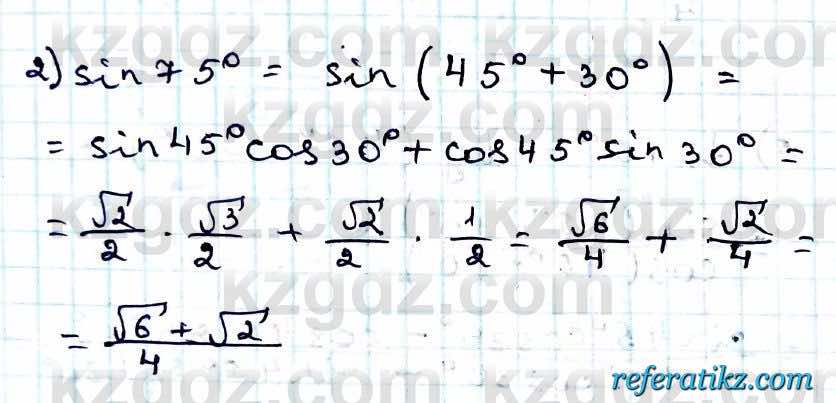 2) sin 75° = sin (45° + 30°) =
= sin 45° cos 30° + cos 45° sin 30° =
= √2/2 · √3/2 + √2/2 · 1/2 = √6/4 + √2/4 =
= (√6 + √2)/4
kzgdz.com
referatikz.com